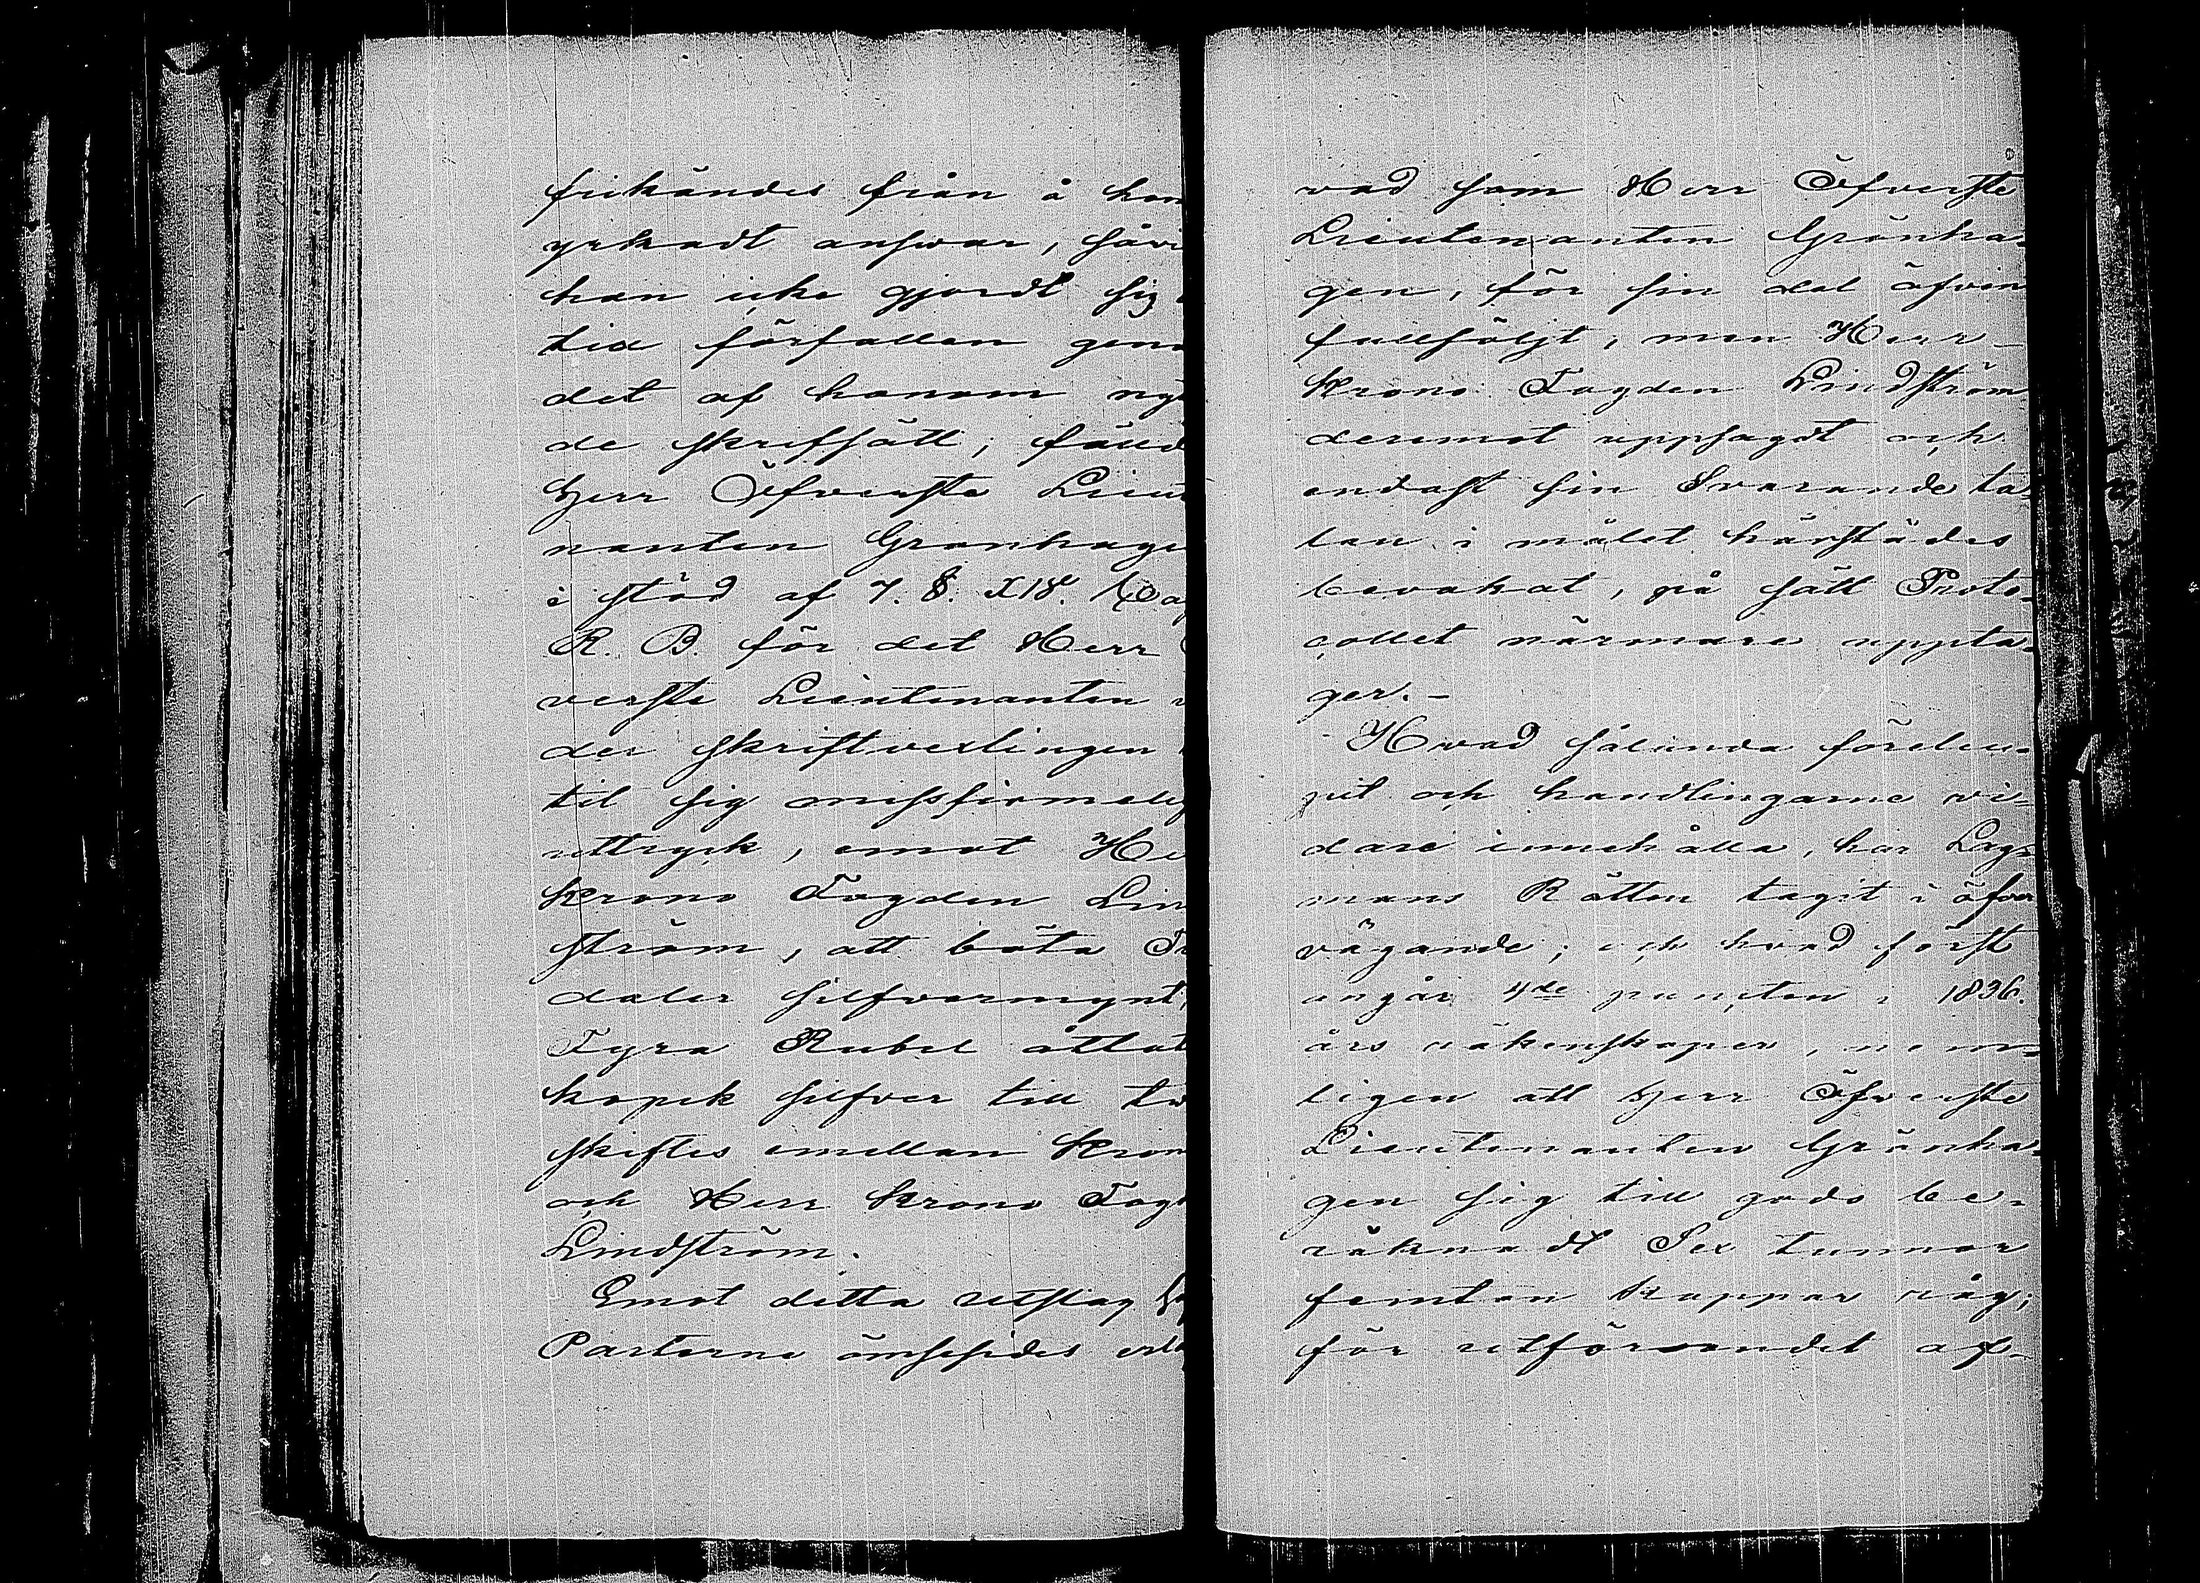 frikändes från å hon
yrkadt answar, såvi
han icke gjordt sig
till förfallen gen
det af honom ny
de skrifsätt; fäll
Herr Öfverste Lieut
nanten Grönhage
i stöd af 7. §. XIV. Ca
R. B. för det Herr
verste Lieutenanten
der skriftvexlingen
til sig missfirmelig
uttryck, emot He
Krono Fogden Lin
ström, att böta
daler silfvermynt,
Fyra Rubel åttat
kopek silfver till tv
skiftes emellan Kron
och Herr Krono Fog
Lindström.
Emot detta utslag
Parterne ömsesides
vad som Herr Öfverste
Lieutenanten Grönha-
gen, för sin del äfven
fullföljt, men Herr
Krono Fogden Lindström
deremot uppsagdt och
endast sin Svarande ta-
lan i målet härstädes
bevakat, på sätt Proto-
collet närmare uppta-
ger.-
Hvad sålunda förelu-
pit och handlingarne vi-
dare innehålla, har Lag-
mans Rätten tagit i öfver
vägande; och hvad först
angår 4de puncten i 1836.
års räkenskaper, nem-
ligen att Herr Öfverste
Lieutenanten Grönha-
gen sig till godo be-
räknadt Sex tunnor
femton kappar råg;
för utförandet af